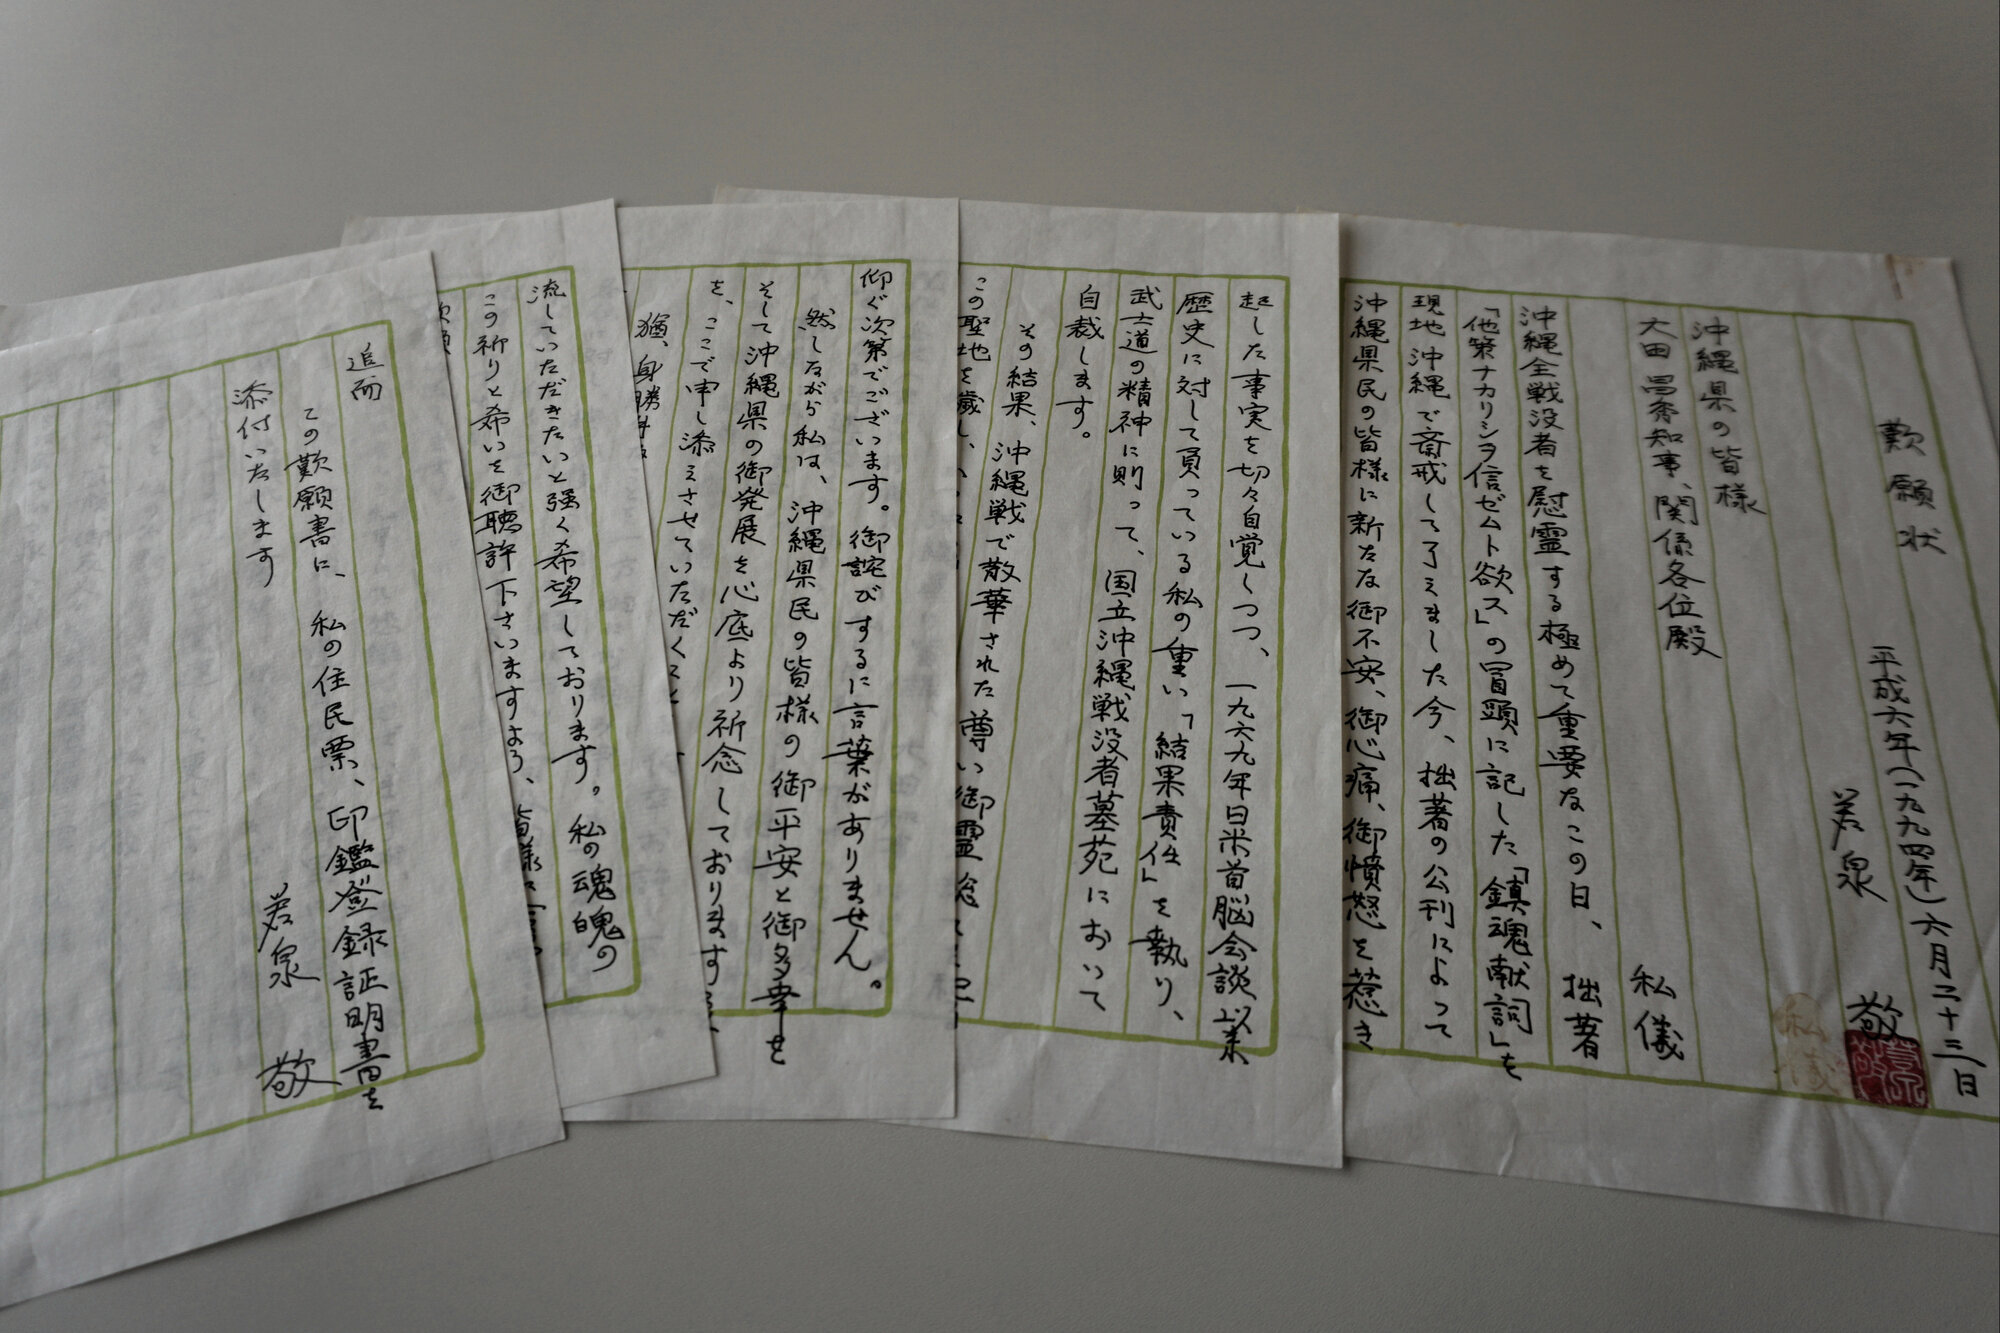 歎願状
平成六年(一九九四年)六月二十三日
若泉 敬
沖縄県の皆様
大田昌秀知事、関係各位殿
私儀
沖縄全戦没者を慰霊する極めて重要なこの日、拙著
「他策ナカリシヲ信ゼムト欲ス」の冒頭に記した「鎮魂献詞」を
現地沖縄で斎戒して了えました今、拙著の公刊によって
沖縄県民の皆様に新たな御不安、御心痛、御憤怒を惹き
起した事実を切々自覚しつつ、一九六九年日米首脳会談以来
歴史に対して負っている私の重い「結果責任」を執り、
武士道の精神に則って、国立沖縄戦没者墓苑において
自裁します。
その結果、沖縄戦で散華された尊い御霊
この聖地を
仰ぐ次第でございます。御詫びするに言葉がありません。
然しながら私は、沖縄県民の皆様の御平安と御多幸を
そして沖縄県の御発展を心底より祈念しております
を、ここで申し添えさせていただくこと
猶、身勝手な
流していただきたいと強く希望しております。私の魂魄の
この祈りと希いを御聴許下さいますよう、皆様
追而
この歎願書に、私の住民票、印鑑登録証明書を
添付いたします
若泉 敬